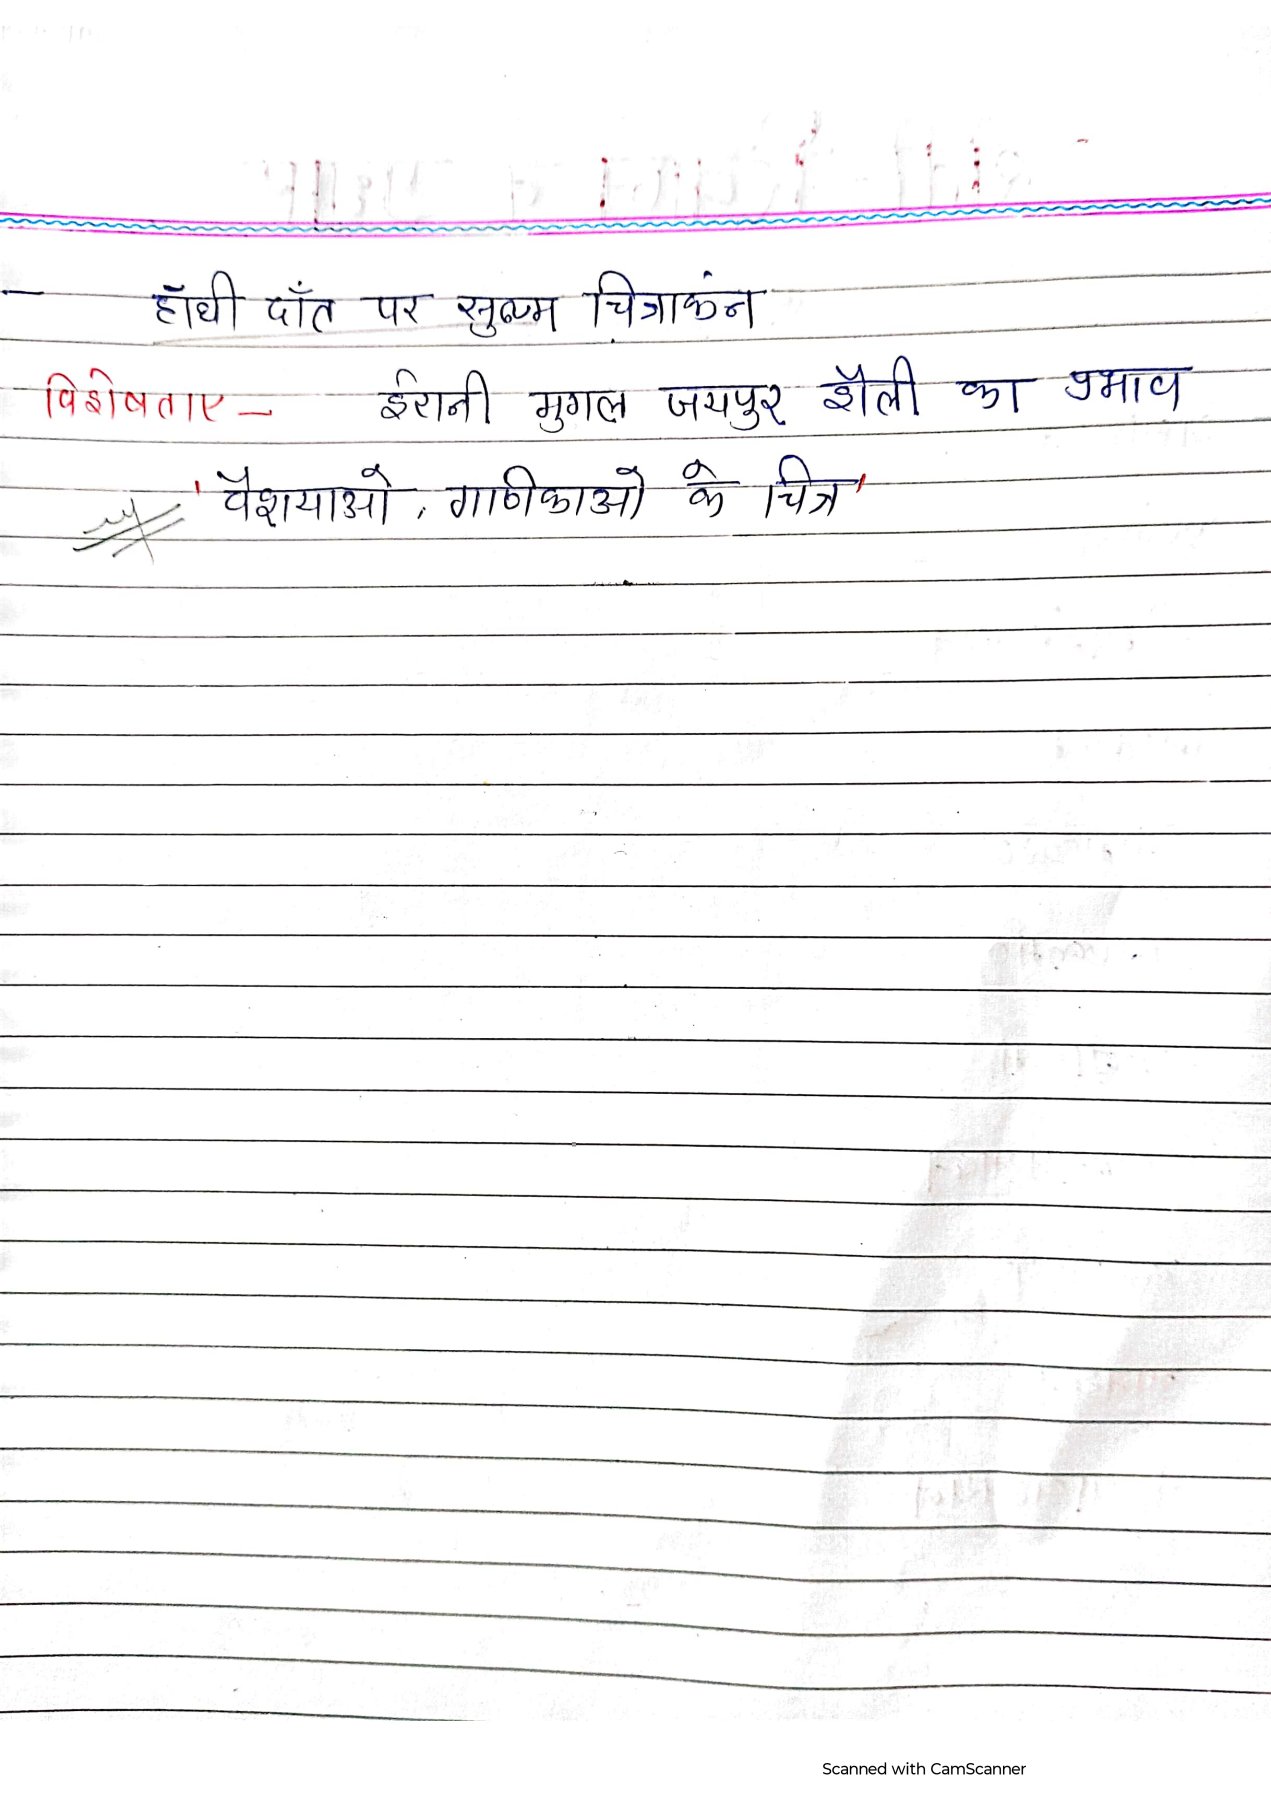 — हॉथी दाँत पर सुक्ष्म चित्राकंन
विशेषताए – ईरानी मुगल जयपुर शैली का प्रभाव
'वैशयाओ, गाणीकाओ के चित्र'
Scanned with CamScanner